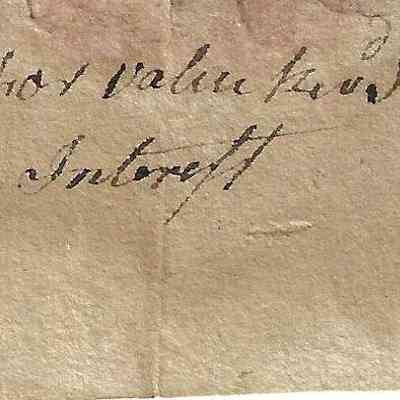 for value Recd
Interest